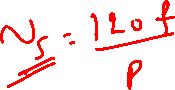 Ns = 120 f / P